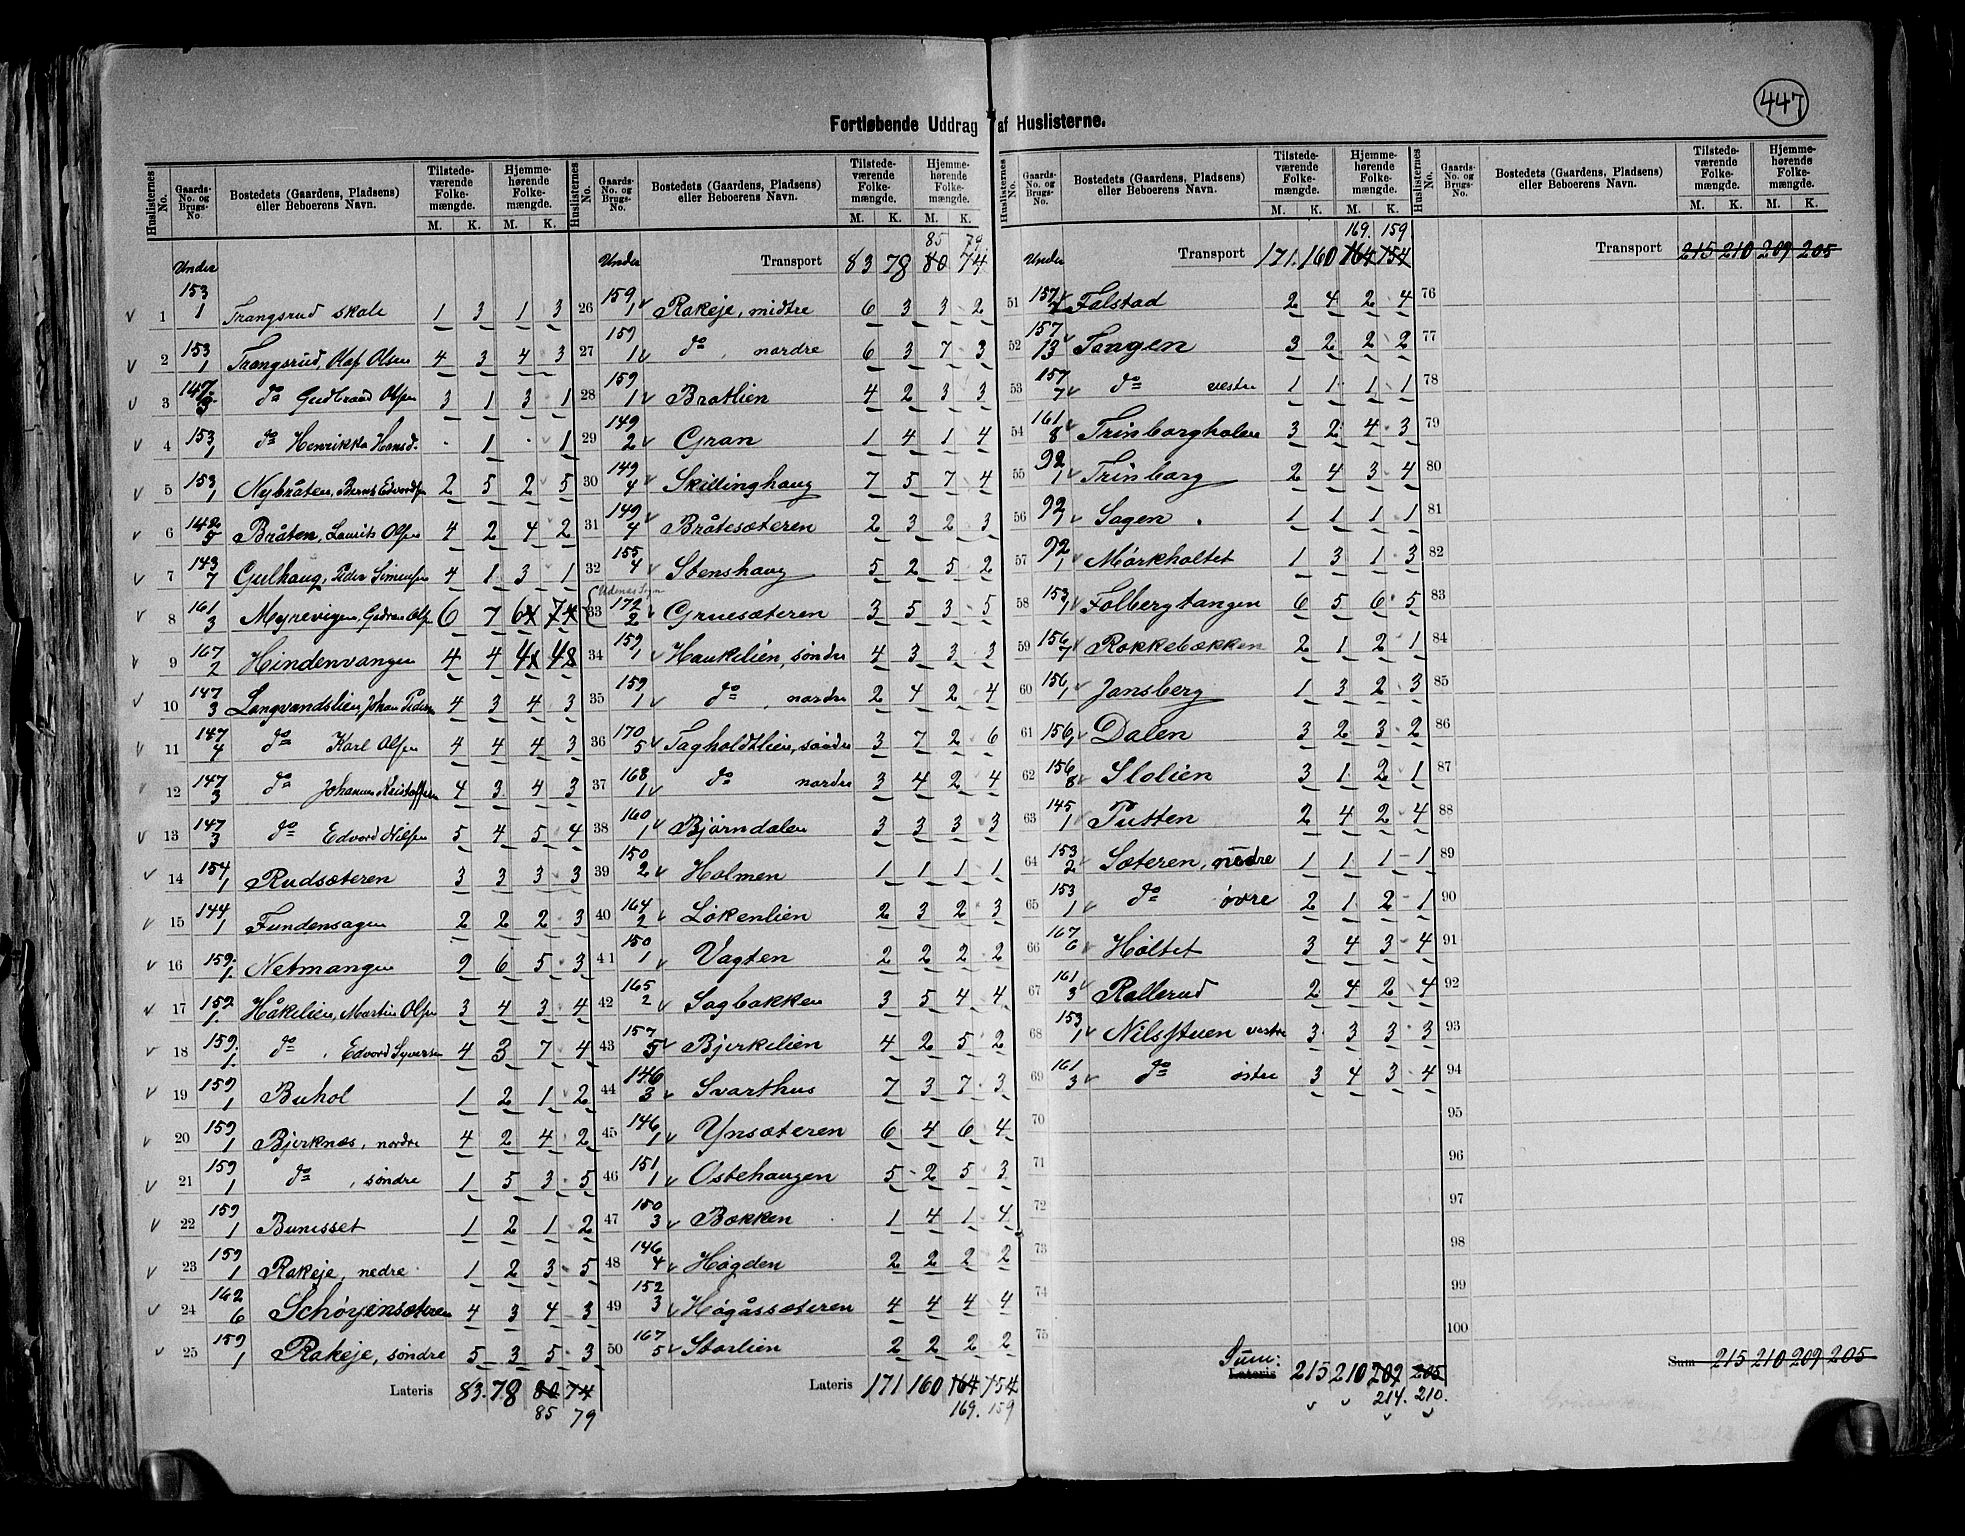 447
Fortløbende Uddrag af Huslisterne.
Huslisternes No. | Gaards-No. og Brugs-No. | Bostedets (Gaardens, Pladsen) eller Beboerens Navn. | Tilstedeværende Folkemængde. M. K. | Hjemmehørende Folkemængde. M. K.
Under
1 153/1 Trangsrud skole 1 3 1 3
2 153/1 Trangsrud, Olaf Olsen 4 3 4 3
3 147/3 do Gudbrand Olsen 3 1 3 1
4 153/1 do Henrikka Hansd. · 1 · 1
5 153/1 Nybråten, Bernt Edvordsen 2 5 2 5
6 142/5 Bråten, Laurits Olsen 4 2 4 2
7 143/7 Gulhaug, Peder Simensen 4 1 3 1
8 161/3 Myrevigen, Gudran Olsen 6 7 6 7
9 167/2 Hindenvangen 4 4 4 4
10 147/3 Langvandslien, Johan Peders 4 3 4 3
11 147/4 do Karl Olsen 4 4 4 3
12 147/3 do Johannes Kristoffersen 4 3 4 3
13 147/3 do Edvord Nilsen 5 4 5 4
14 154/1 Rudsæteren 3 3 3 3
15 144/1 Fundensagen 2 2 2 3
16 159/1 Netmangen 2 6 5 3
17 159/1 Håkilien, Martin Olsen 3 4 3 4
18 159/1 do, Edvord Syversen 4 3 7 4
19 159/1 Buhol 1 2 1 2
20 159/1 Bjerknæs, nordre 4 2 4 2
21 159/1 do, søndre 1 5 3 5
22 159/1 Bunesset 1 2 1 2
23 159/1 Rakeje, nedre 1 2 3 5
24 162/6 Schørjensæteren 4 3 4 3
25 159/1 Rakeje, søndre 5 3 5 3
Lateris 83. 78 80 74
85 79
Huslisternes No. | Gaards-No. og Brugs-No. | Bostedets (Gaardens, Pladsen) eller Beboerens Navn. | Tilstedeværende Folkemængde. M. K. | Hjemmehørende Folkemængde. M. K.
85 79
Under Transport 83 78 80 74
26 159/1 Rakeje, midtre 6 3 3 2
27 159/1 do, nordre 6 3 7 3
28 159/1 Bratlien 4 2 3 3
29 149/2 Gran 1 4 1 4
30 149/4 Skillinghaug 7 5 7 4
31 149/4 Bråtesæteren 2 3 2 3
32 155/4 Stenshaug 5 2 5 2
33 172/2 Gruesæteren 3 5 3 5
34 159/1 Haukilien, søndre 4 3 3 3
35 159/1 do, nordre 2 4 2 4
36 170/5 Tagholdtlien, søndre 3 7 2 6
37 168/1 do nordre 3 4 2 4
38 160/1 Bjørndalen 3 3 3 3
39 150/2 Holmen 1 1 1 1
40 164/2 Løkenlien 2 3 2 3
41 150/1 Vagten 2 2 2 2
42 165/2 Sagbakken 3 5 4 4
43 157/5 Bjerkelien 4 2 5 2
44 146/3 Svarthus 7 3 7 3
45 146/1 Ynsæteren 6 4 6 4
46 151/1 Ostehaugen 5 2 5 3
47 150/3 Bækken 1 4 1 4
48 146/4 Høgden 2 2 2 2
49 152/3 Høgåssæteren 4 4 4 4
50 167/5 Storlien 2 2 2 2
Lateris 171 160 164 154
169. 159
Huslisternes No. | Gaards-No. og Brugs-No. | Bostedets (Gaardens, Pladsen) eller Beboerens Navn. | Tilstedeværende Folkemængde. M. K. | Hjemmehørende Folkemængde. M. K.
169. 159
Under Transport 171. 160 164 154
51 157/4 Falstad 2 4 2 4
52 157/13 Tangen 3 2 2 2
53 157/7 do vestre 1 1 1 1
54 161/8 Trinborgholen 3 2 4 3
55 92/1 Trinborg 2 4 3 4
56 92/1 Sagen 1 1 1 1
57 92/1 Mørkholtet 1 3 1 3
58 153/1 Folbergtangen 6 5 6 5
59 156/7 Rokkebækken 2 1 2 1
60 156/1 Jansberg 1 3 2 3
61 156/1 Dalen 3 2 3 2
62 156/8 Slolien 3 1 2 1
63 145/1 Putten 2 4 2 4
64 153/2 Sæteren, nedre 1 1 1 1
65 153/1 do øvre 2 1 2 1
66 167/6 Holtet 3 4 3 4
67 161/3 Rallerud 2 4 2 4
68 153/1 Nilsstuen vestre 3 3 3 3
69 161/3 do østre 3 4 3 4
70
71
72
73
74
75
Sum: Lateris 215 210 209 205
214. 210.
Huslisternes No. | Gaards-No. og Brugs-No. | Bostedets (Gaardens, Pladsen) eller Beboerens Navn. | Tilstedeværende Folkemængde. M. K. | Hjemmehørende Folkemængde. M. K.
Transport 215 210 209 205
76
77
78
79
80
81
82
83
84
85
86
87
88
89
90
91
92
93
94
95
96
97
98
99
100
Sum 215 210 209 205